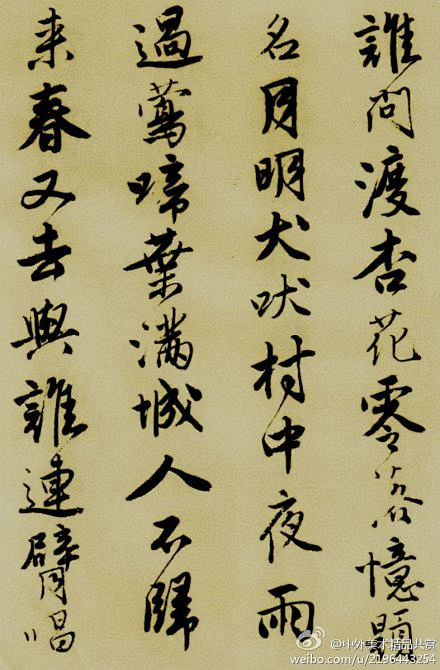 誰問渡杏花零落憶題
名月明犬吠村中夜雨
過鶯啼葉滿城人不歸
来春又去與誰連臂唱
@中外美术精品共赏
weibo.com/u/2196443254